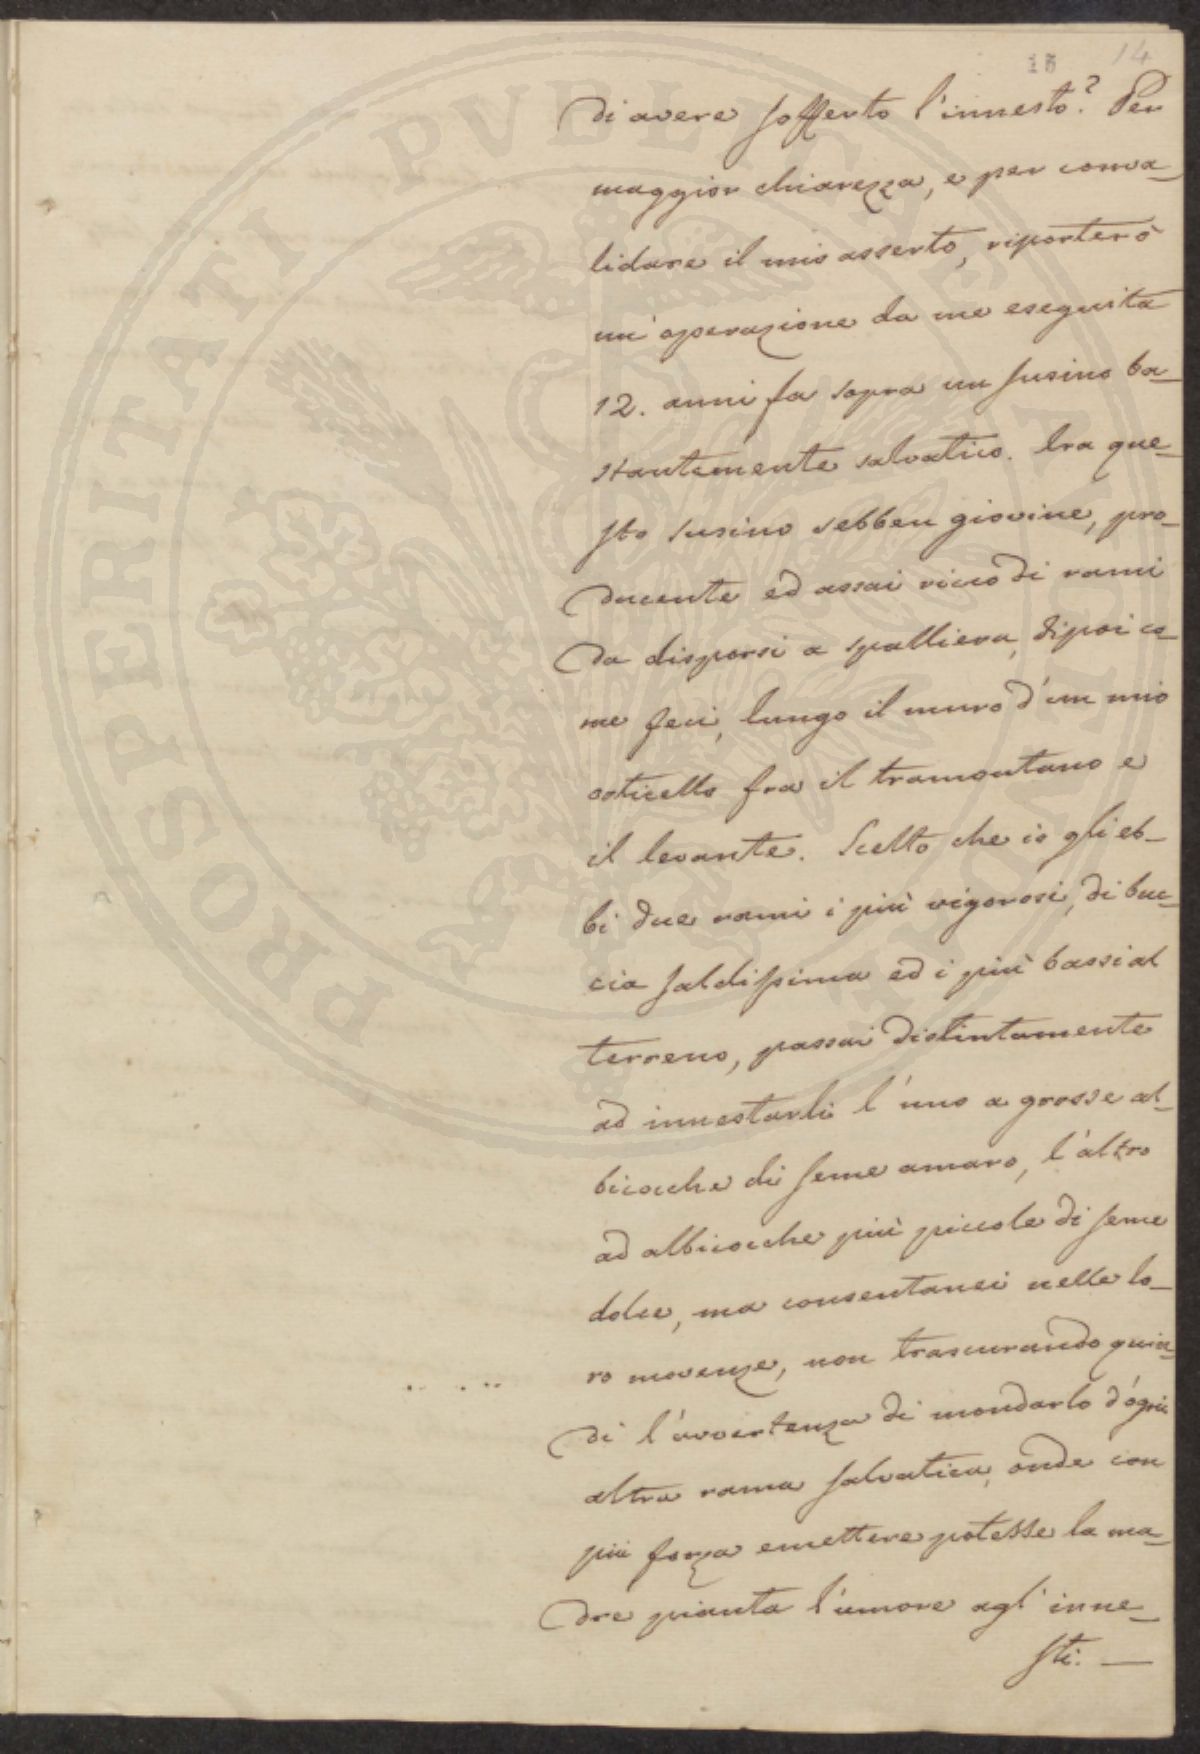 15 14
di avere sofferto l'innesto? Per
maggior chiarezza, e per conva-
lidare il mio asserto, riporterò
un' operazione da me eseguita
12. anni fa sopra un susino ba-
stantemente salvatico. Era que-
sto susino sebben giovine, pro-
ducente ed assai ricco di rami
da disporsi a spalliera, dipoi co-
me feci, lungo il muro d'un mio
orticello fra il tramontano e
il levante. Scelto che io gli eb-
bi due rami i più vigorosi, di buc-
cia saldissima ed i più bassi al
terreno, passai distintamente
ad innestarli l'uno a grosse al-
bicocche di seme amaro, l'altro
ad albicocche più piccole di seme
dolce, ma consentanei nelle lo-
ro movenze, non trascurando quin-
di l'avvertenza di mondarlo d'ogni
altra rama salvatica, onde con
più forza emettere potesse la ma-
dre pianta l'umore agl' inne-
sti. —
PROSPERITATI PVBLICAE